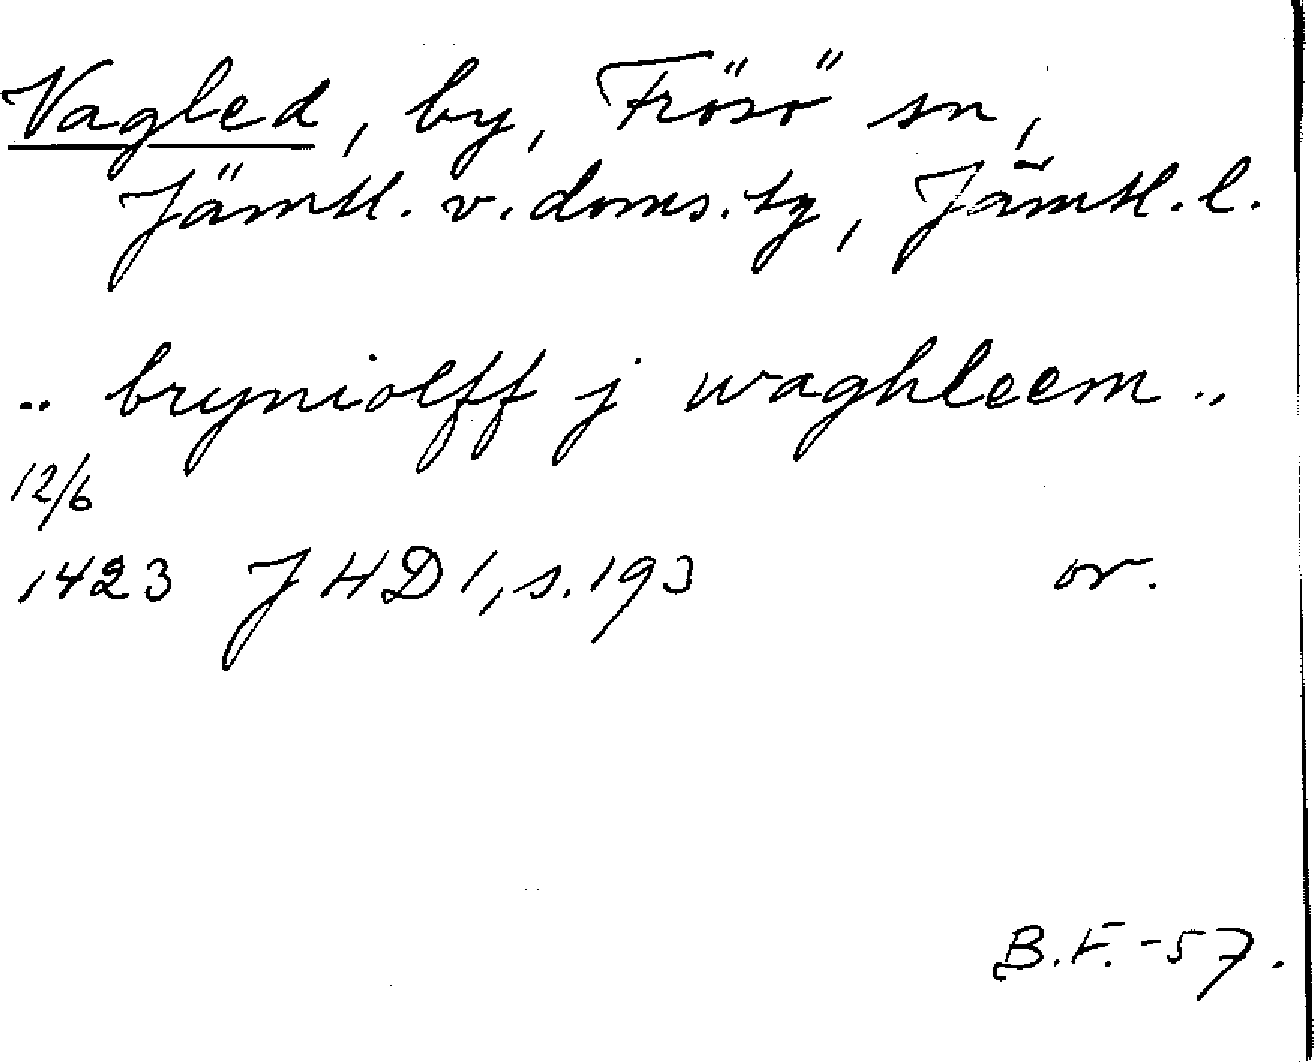 Vagled, by, Frösö sn,
Jämtl. v. doms. tg, Jämtl. l.
.. bryniolff j waghleem ..
12/6
1423 JHD 1, s. 193 or.
B.F. -57.